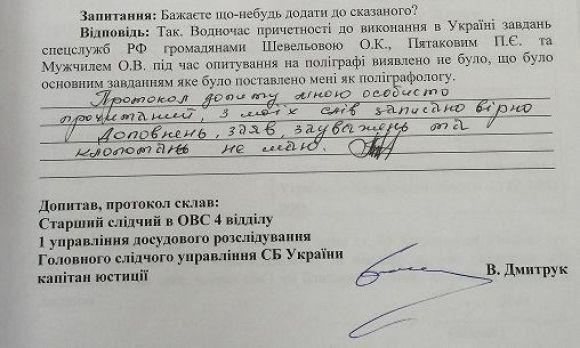 Запитання: Бажаєте що-небудь додати до сказаного?
Відповідь: Так. Водночас причетності до виконання в Україні завдань
спецслужб РФ громадянами Шевельовою О.К., Пятаковим П.Є. та
Мужчилем О.В. під час опитування на поліграфі виявлено не було, що було
основним завданням яке було поставлено мені як поліграфологу.
Протокол допиту мною особисто
прочитаний, з моїх слів записано вірно
Доповнень, заяв, зауважень та
клопотань не маю.
Допитав, протокол склав:
Старший слідчий в ОВС 4 відділу
1 управління досудового розслідування
Головного слідчого управління СБ України
капітан юстиції
В. Дмитрук